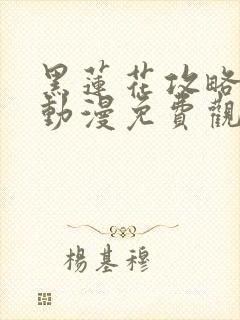 黑蓮花攻略
動漫免費觀
楊基穆